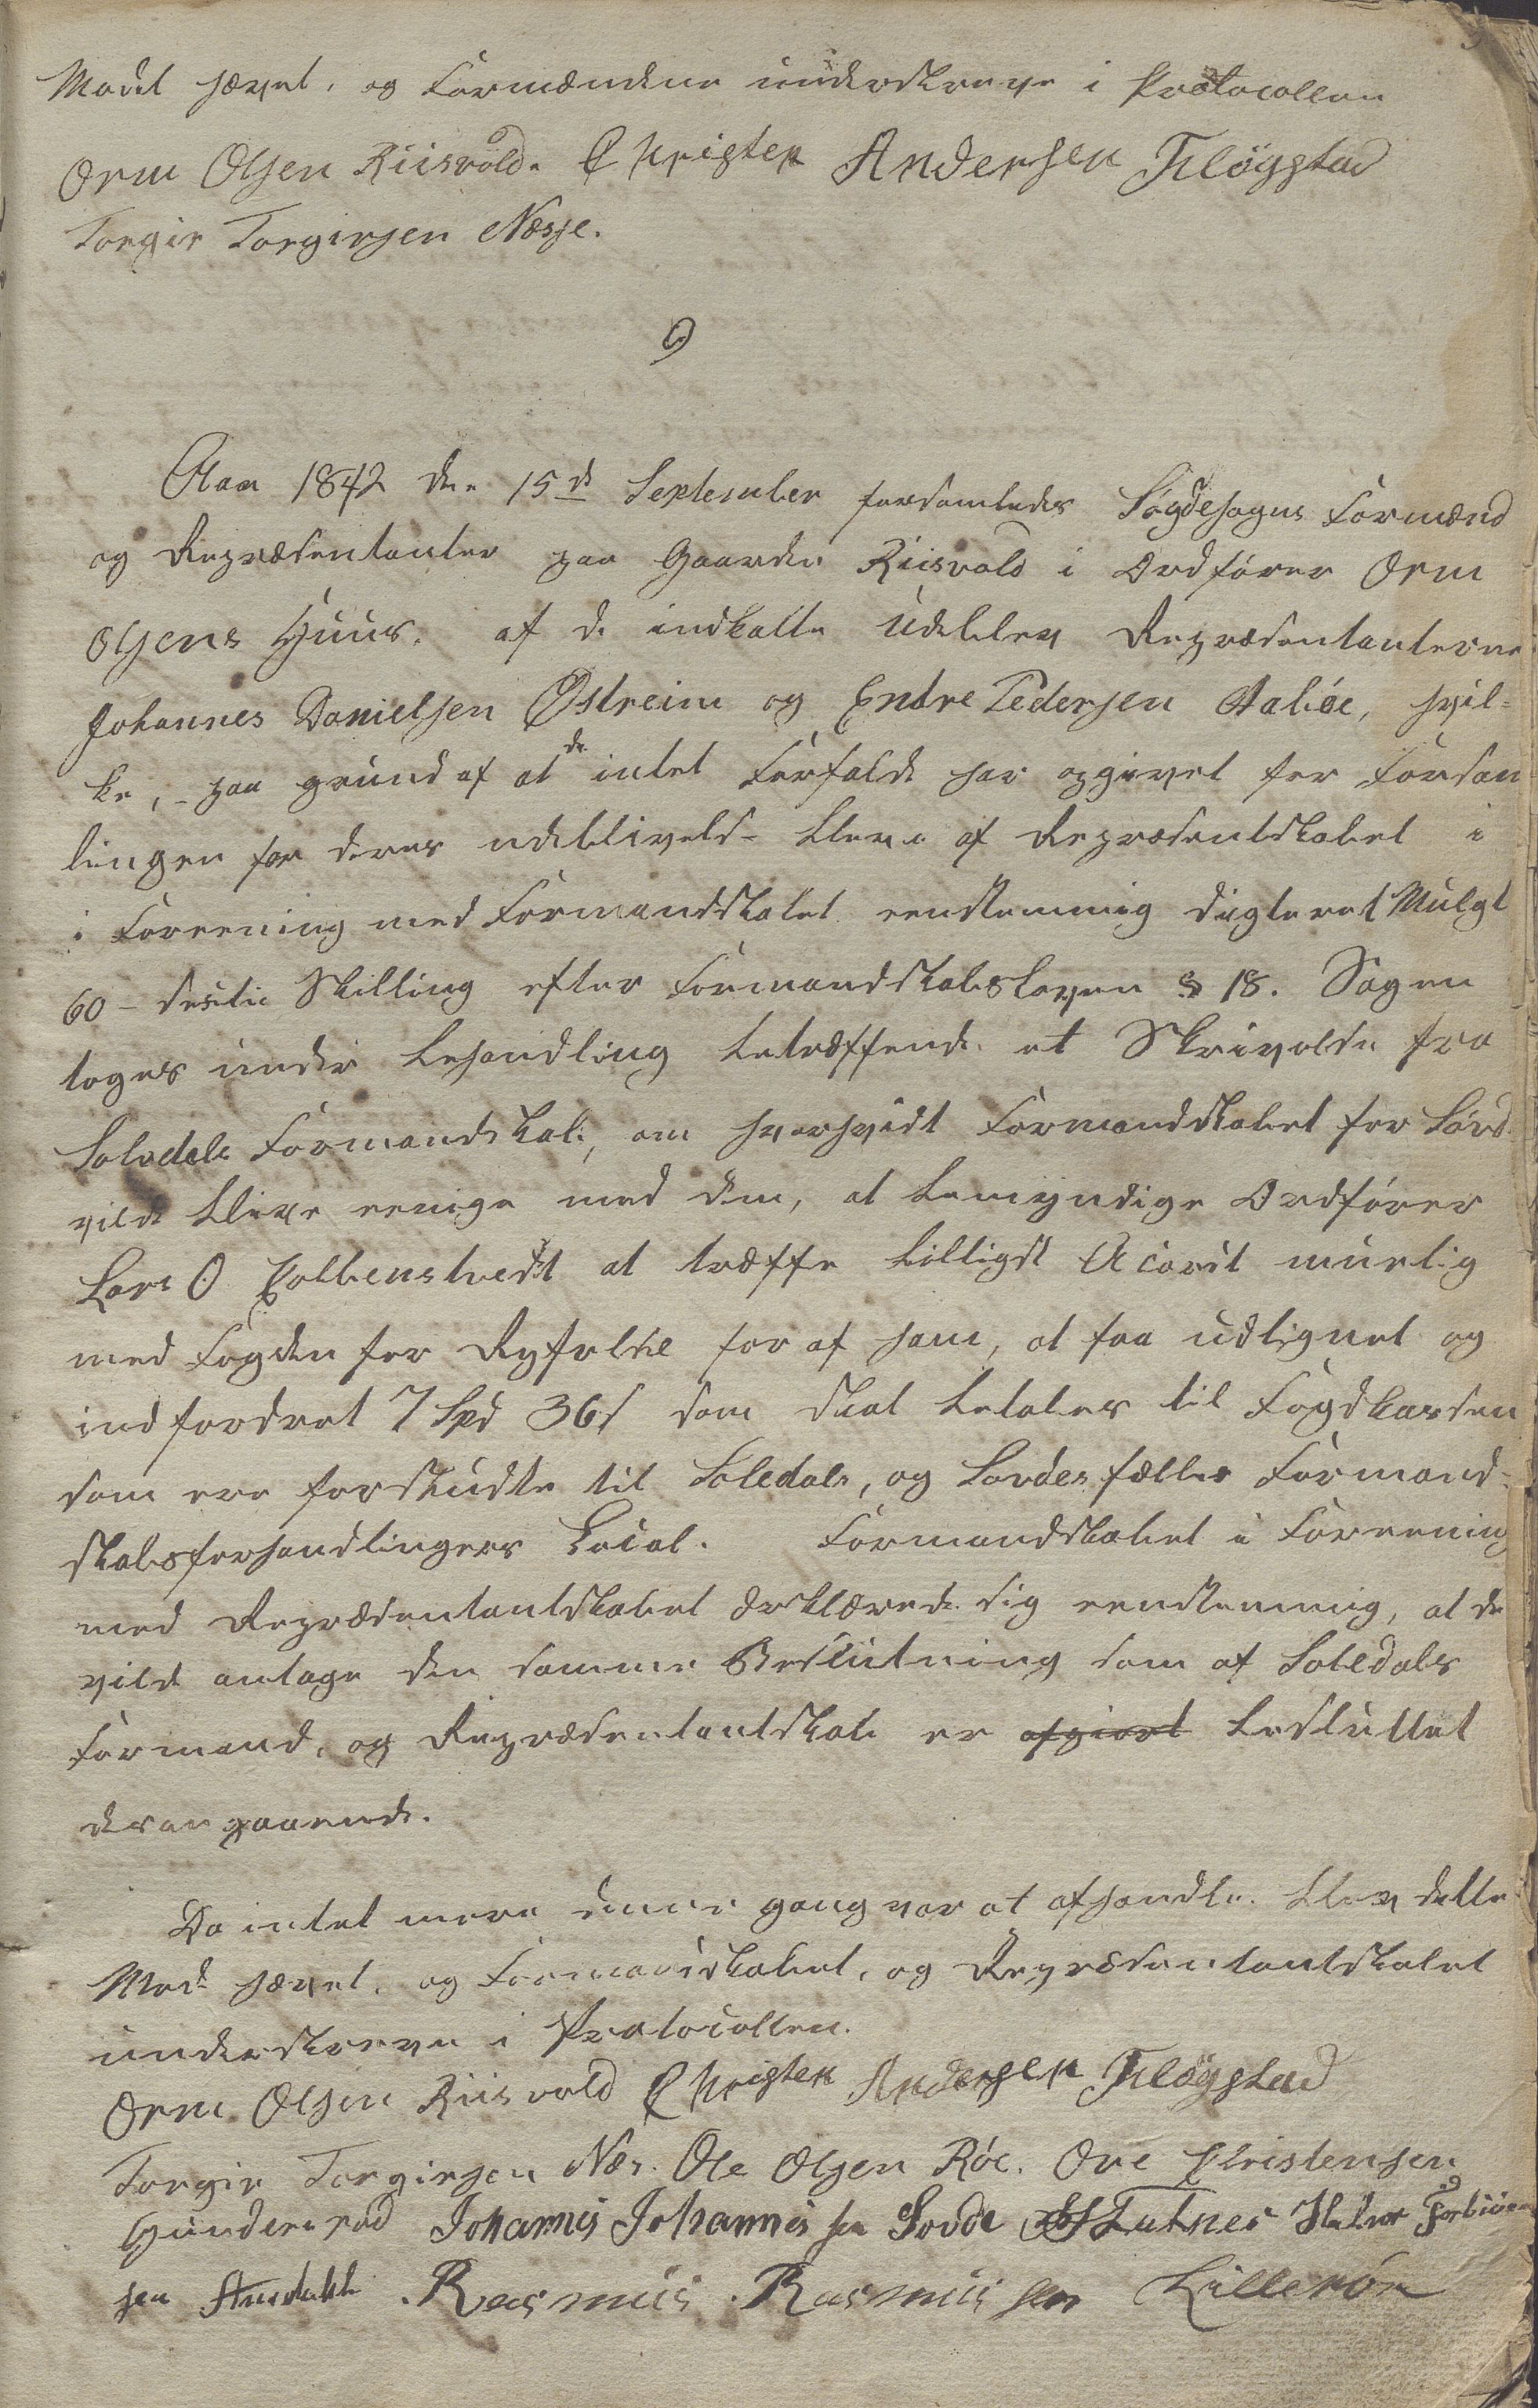 Mødet hævet, og Formændene underskreve i Protocollen
Orm Olsen Riisvold. Christen Andersen Fløgstad
Torgir Torgirsen Næsse.
9
Aar 1842 den 15de September forsamledes Søgdesogns Formænd
og Repræsentanter paa Gaarden Riisvold i Ordfører Orm
Olsens Huus. af de indkalte Udeblev Repræsentanterne
Johannes Danielsen Østreim og Endre Pedersen Aabøe, hvil-
ke, - paa grund af at de intet Forfald har opgivet for Forsam
lingen for deres udeblivelse bleve af Repræsentskabet i
i Foreening med Formandskabet eenstemmig digteret Mulgt
60 - sexti Skilling efter Formandskabsloven § 18. Sagen
toges under behandling betræffende et Skrivelse fra
Soledals Formandskab, om hvorvidt Formandskabet for Lovd
vilde blive eenige med dem, at bemyndige Ordfører
Lars O Kolbenstvedt at træffe billigst Acord muelig
med Fogden for Ryfylke for af ham, at faa udlignet og
indfordret 7 Spd 36 s som skal betales til Fogdkassen
som ere forskudte til Soledals, og Lovdes fælles Formand-
skabsforhandlingers Local. Formandskabet i Foreening
med Repræsentantskabet ærklærede sig eenstemmig, at de
vilde antage den samme Beslutning som af Soledals
Formand, og Repræsentantskab er afgiort besluttet
derangaaende.
Da intet mere denne gang var at afhandle. blev dette
Møde hævet, og Formandskabet, og Repræsentantskabet
underskreve i Protocollen.
Orm Olsen Riisvold Christen Andersen Fløgstad
Torgir Torgirsen Næs. Ole Olsen Røe. Ove Christensen
Johannis Johannissen Sovde Torbiørn
sen Rasmus Rasmussen Lillerøn